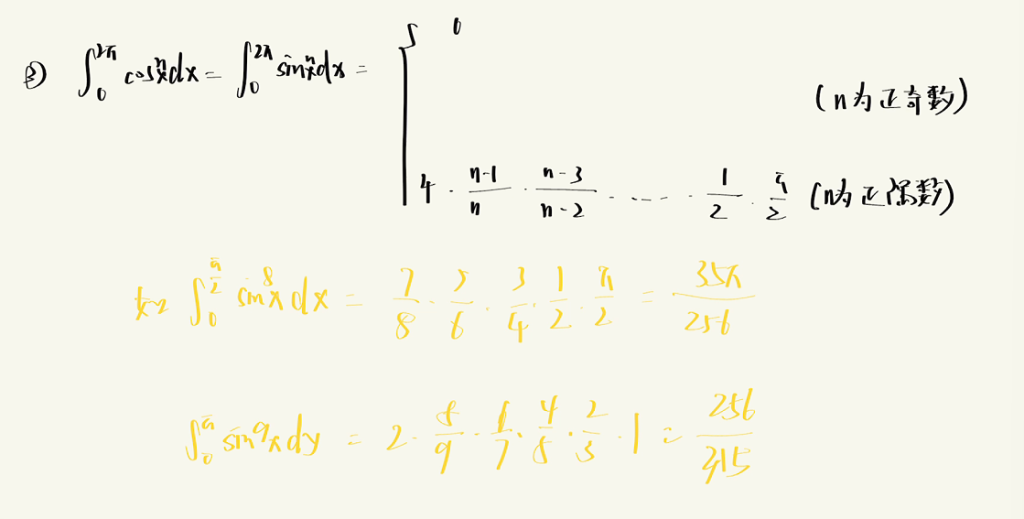 ③ ∫₀^{2π} cosⁿx dx = ∫₀^{2π} sinⁿx dx = { 0 (n为正奇数)
4 · (n-1)/n · (n-3)/(n-2) · ---- · 1/2 · π/2 (n为正偶数)
如 ∫₀^{π/2} sin⁸x dx = 7/8 · 5/6 · 3/4 · 1/2 · π/2 = 35π/256
∫₀^{π} sin⁹x dy = 2 · 8/9 · 6/7 · 4/5 · 2/3 · 1 = 256/315